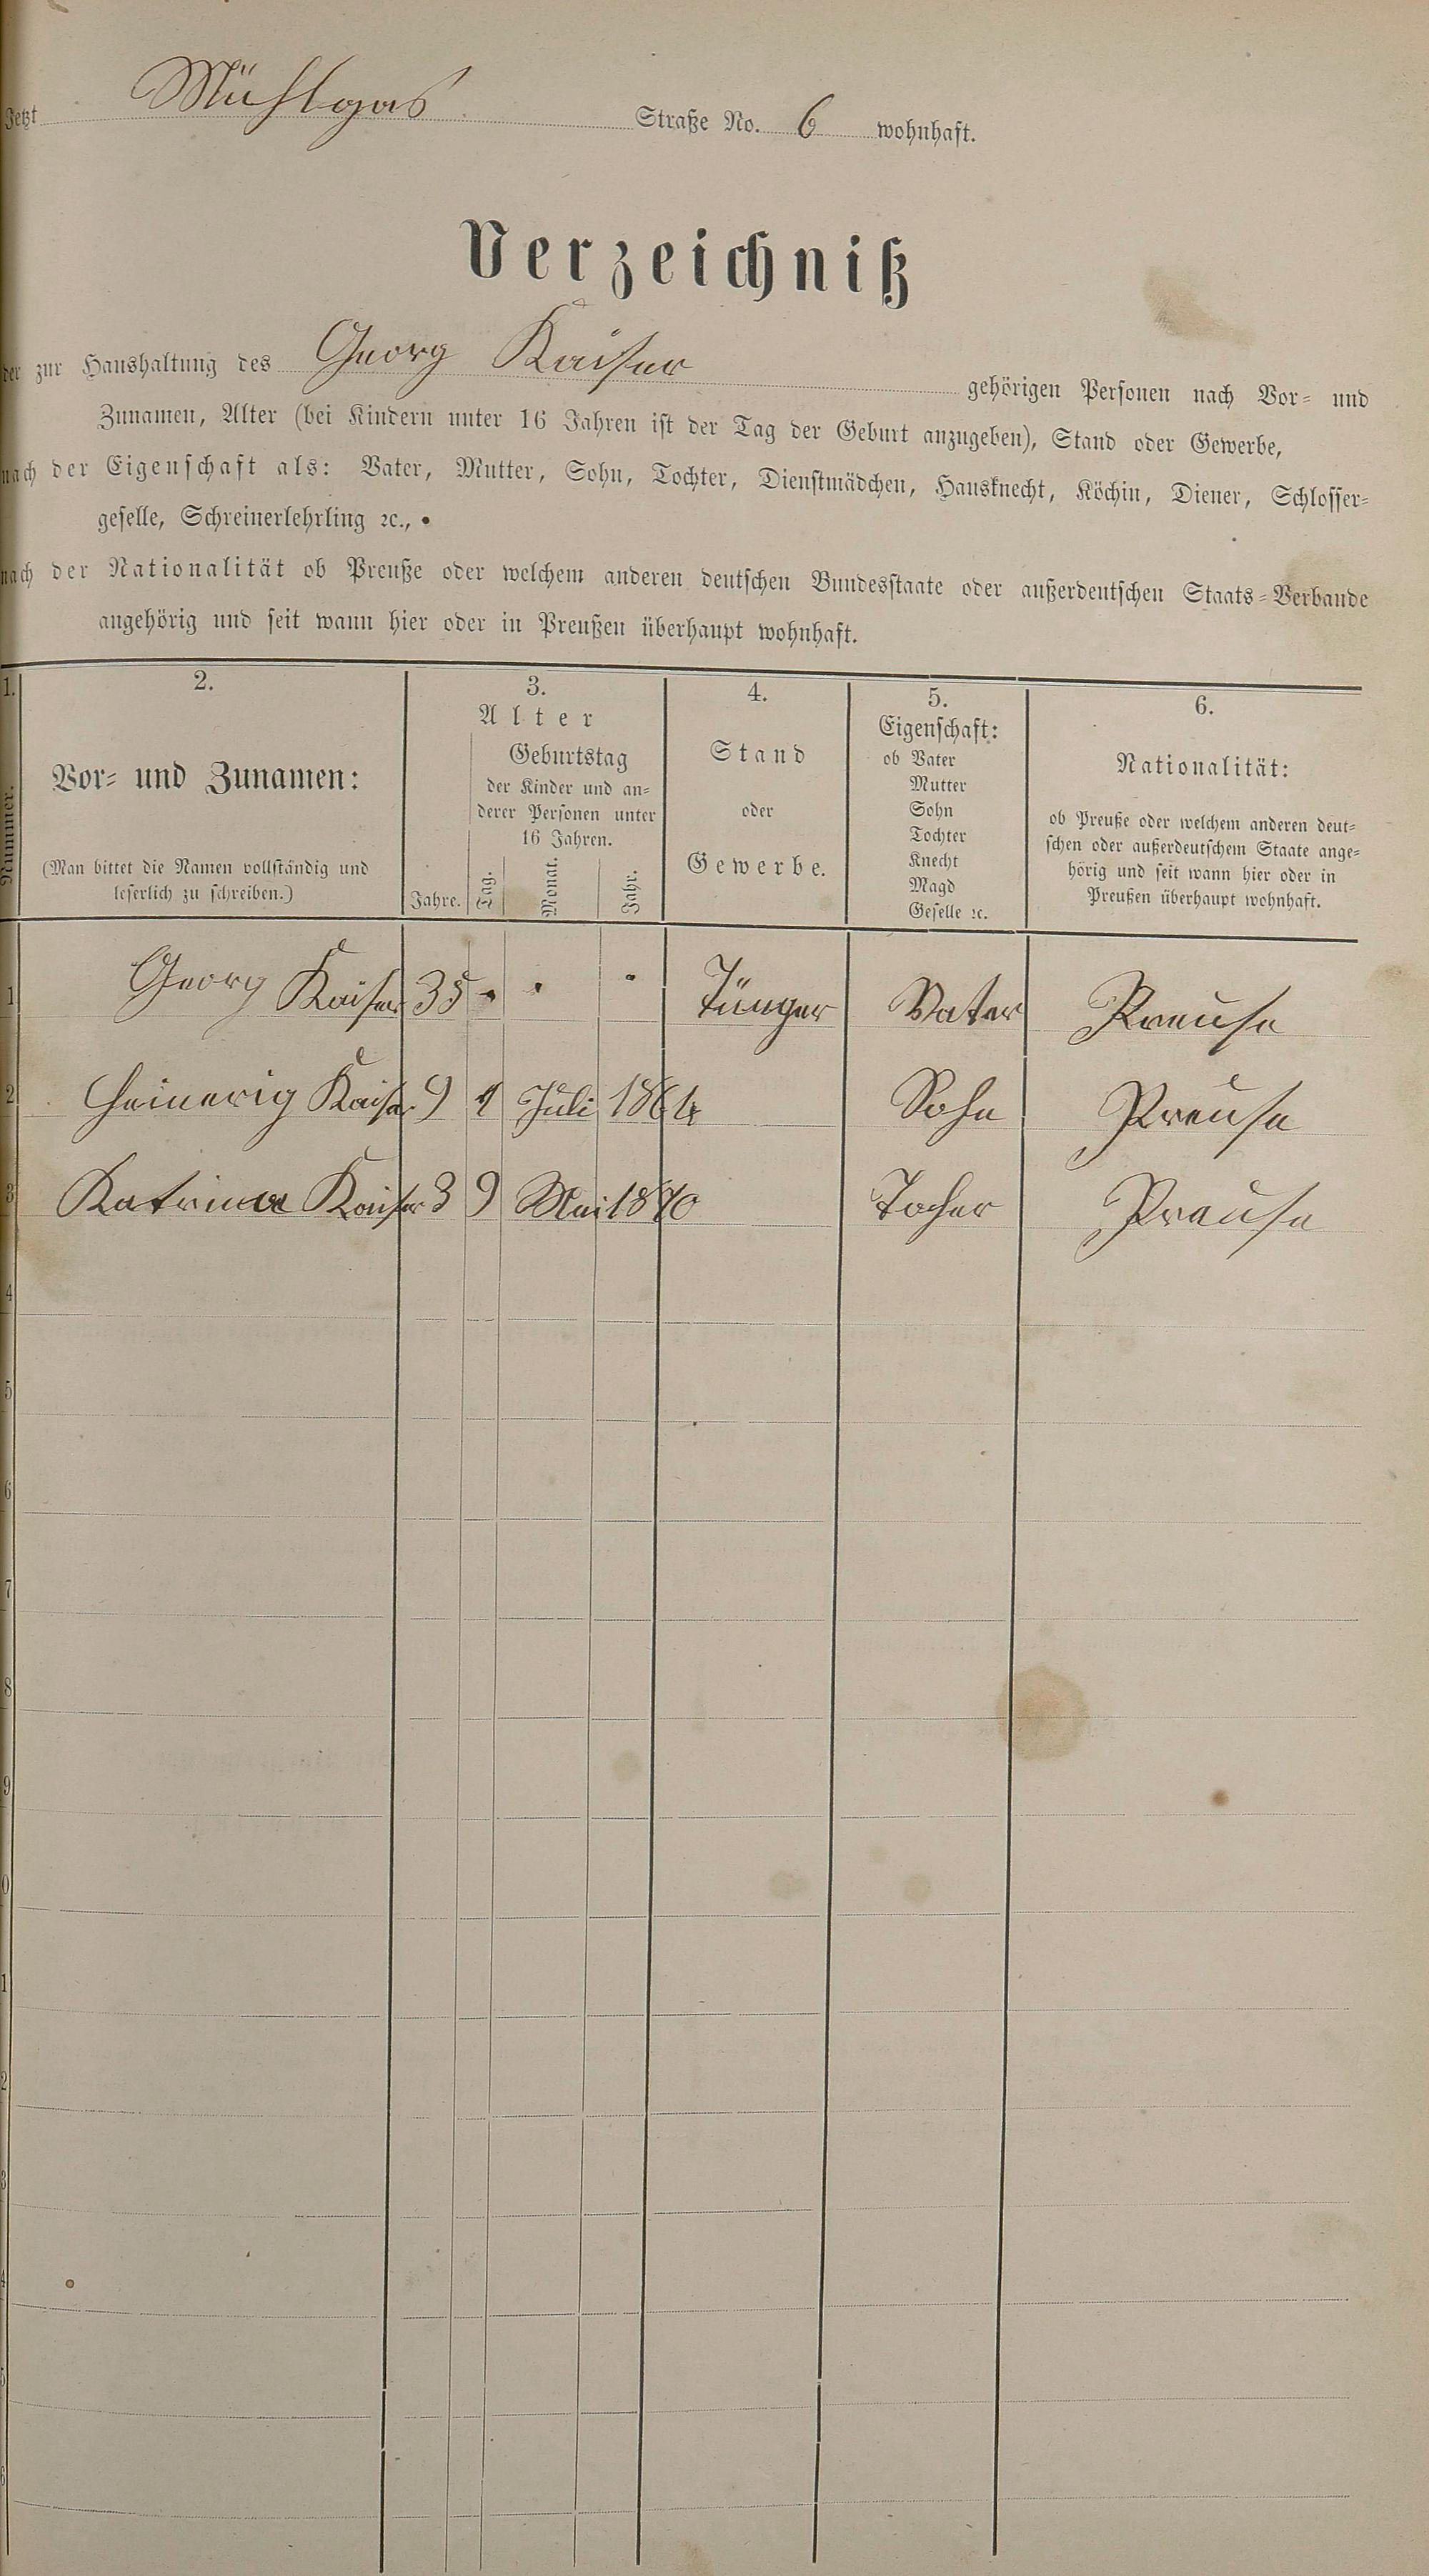 Jetzt Mühlgas Straße No. 6 wohnhaft.
Verzeichniß
der zur Haushaltung des Georg Kaiser gehörigen Personen nach Vor- und
Zunamen, Alter (bei Kindern unter 16 Jahren ist der Tag der Geburt anzugeben), Stand oder Gewerbe,
nach der Eigenschaft als: Vater, Mutter, Sohn, Tochter, Dienstmädchen, Hausknecht, Köchin, Diener, Schlosser-
geselle, Schreinerlehrling ꝛc.,
nach der Nationalität ob Preuße oder welchem anderen deutschen Bundesstaate oder außerdeutschen Staats-Verbande
angehörig und seit wann hier oder in Preußen überhaupt wohnhaft.
1.
Nummer.
2.
Vor- und Zunamen:
(Man bittet die Namen vollständig und
leserlich zu schreiben.)
3.
Alter
Geburtstag
der Kinder und an-
derer Personen unter
16 Jahren.
Jahre. Tag. Monat. Jahr.
4.
Stand
oder
Gewerbe.
5.
Eigenschaft:
ob Vater
Mutter
Sohn
Tochter
Knecht
Magd
Geselle ꝛc.
6.
Nationalität:
ob Preuße oder welchem anderen deut-
schen oder außerdeutschem Staate ange-
hörig und seit wann hier oder in
Preußen überhaupt wohnhaft.
1 Georg Kaiser 35 Tünger Vater Preuse
2 Heinerig Kaiser 9 9 Juli 1864 Sohn Preuse
3 Katrina Kaiser 3 9 Mai 1870 Tocher Preuse
4
5
6
7
8
9
0
1
2
3
4
5
6